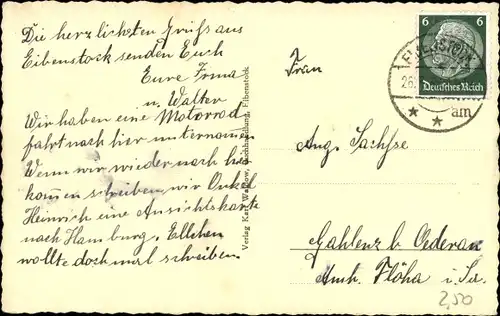 Die herzlichsten Grüße aus
Eibenstock senden Euch
Eure Irma
u. Walter
Wir haben eine Motorrad
fahrt nach hier unternomen
Wenn wir wieder nach hause
kommen schreiben wir Onkel
Heinrich eine Ansichtskarte
nach Hamburg. Ellchen
wollte doch mal schreiben.
Verlag Karl Buchhandlung, Eibenstock
6 6
Deutsches Reich
EIBENSTOCK
26.
am
Frau
Aug. Sachse
Gahlenz b. Oederan
Amh. Flöha i. Sa.
2,50